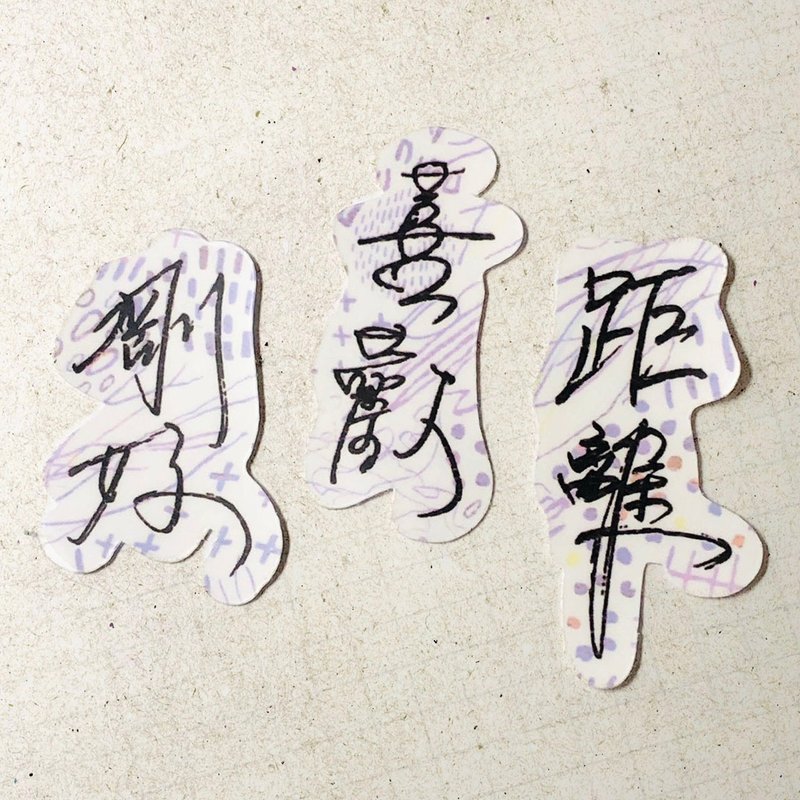 剛好
喜歡
距離